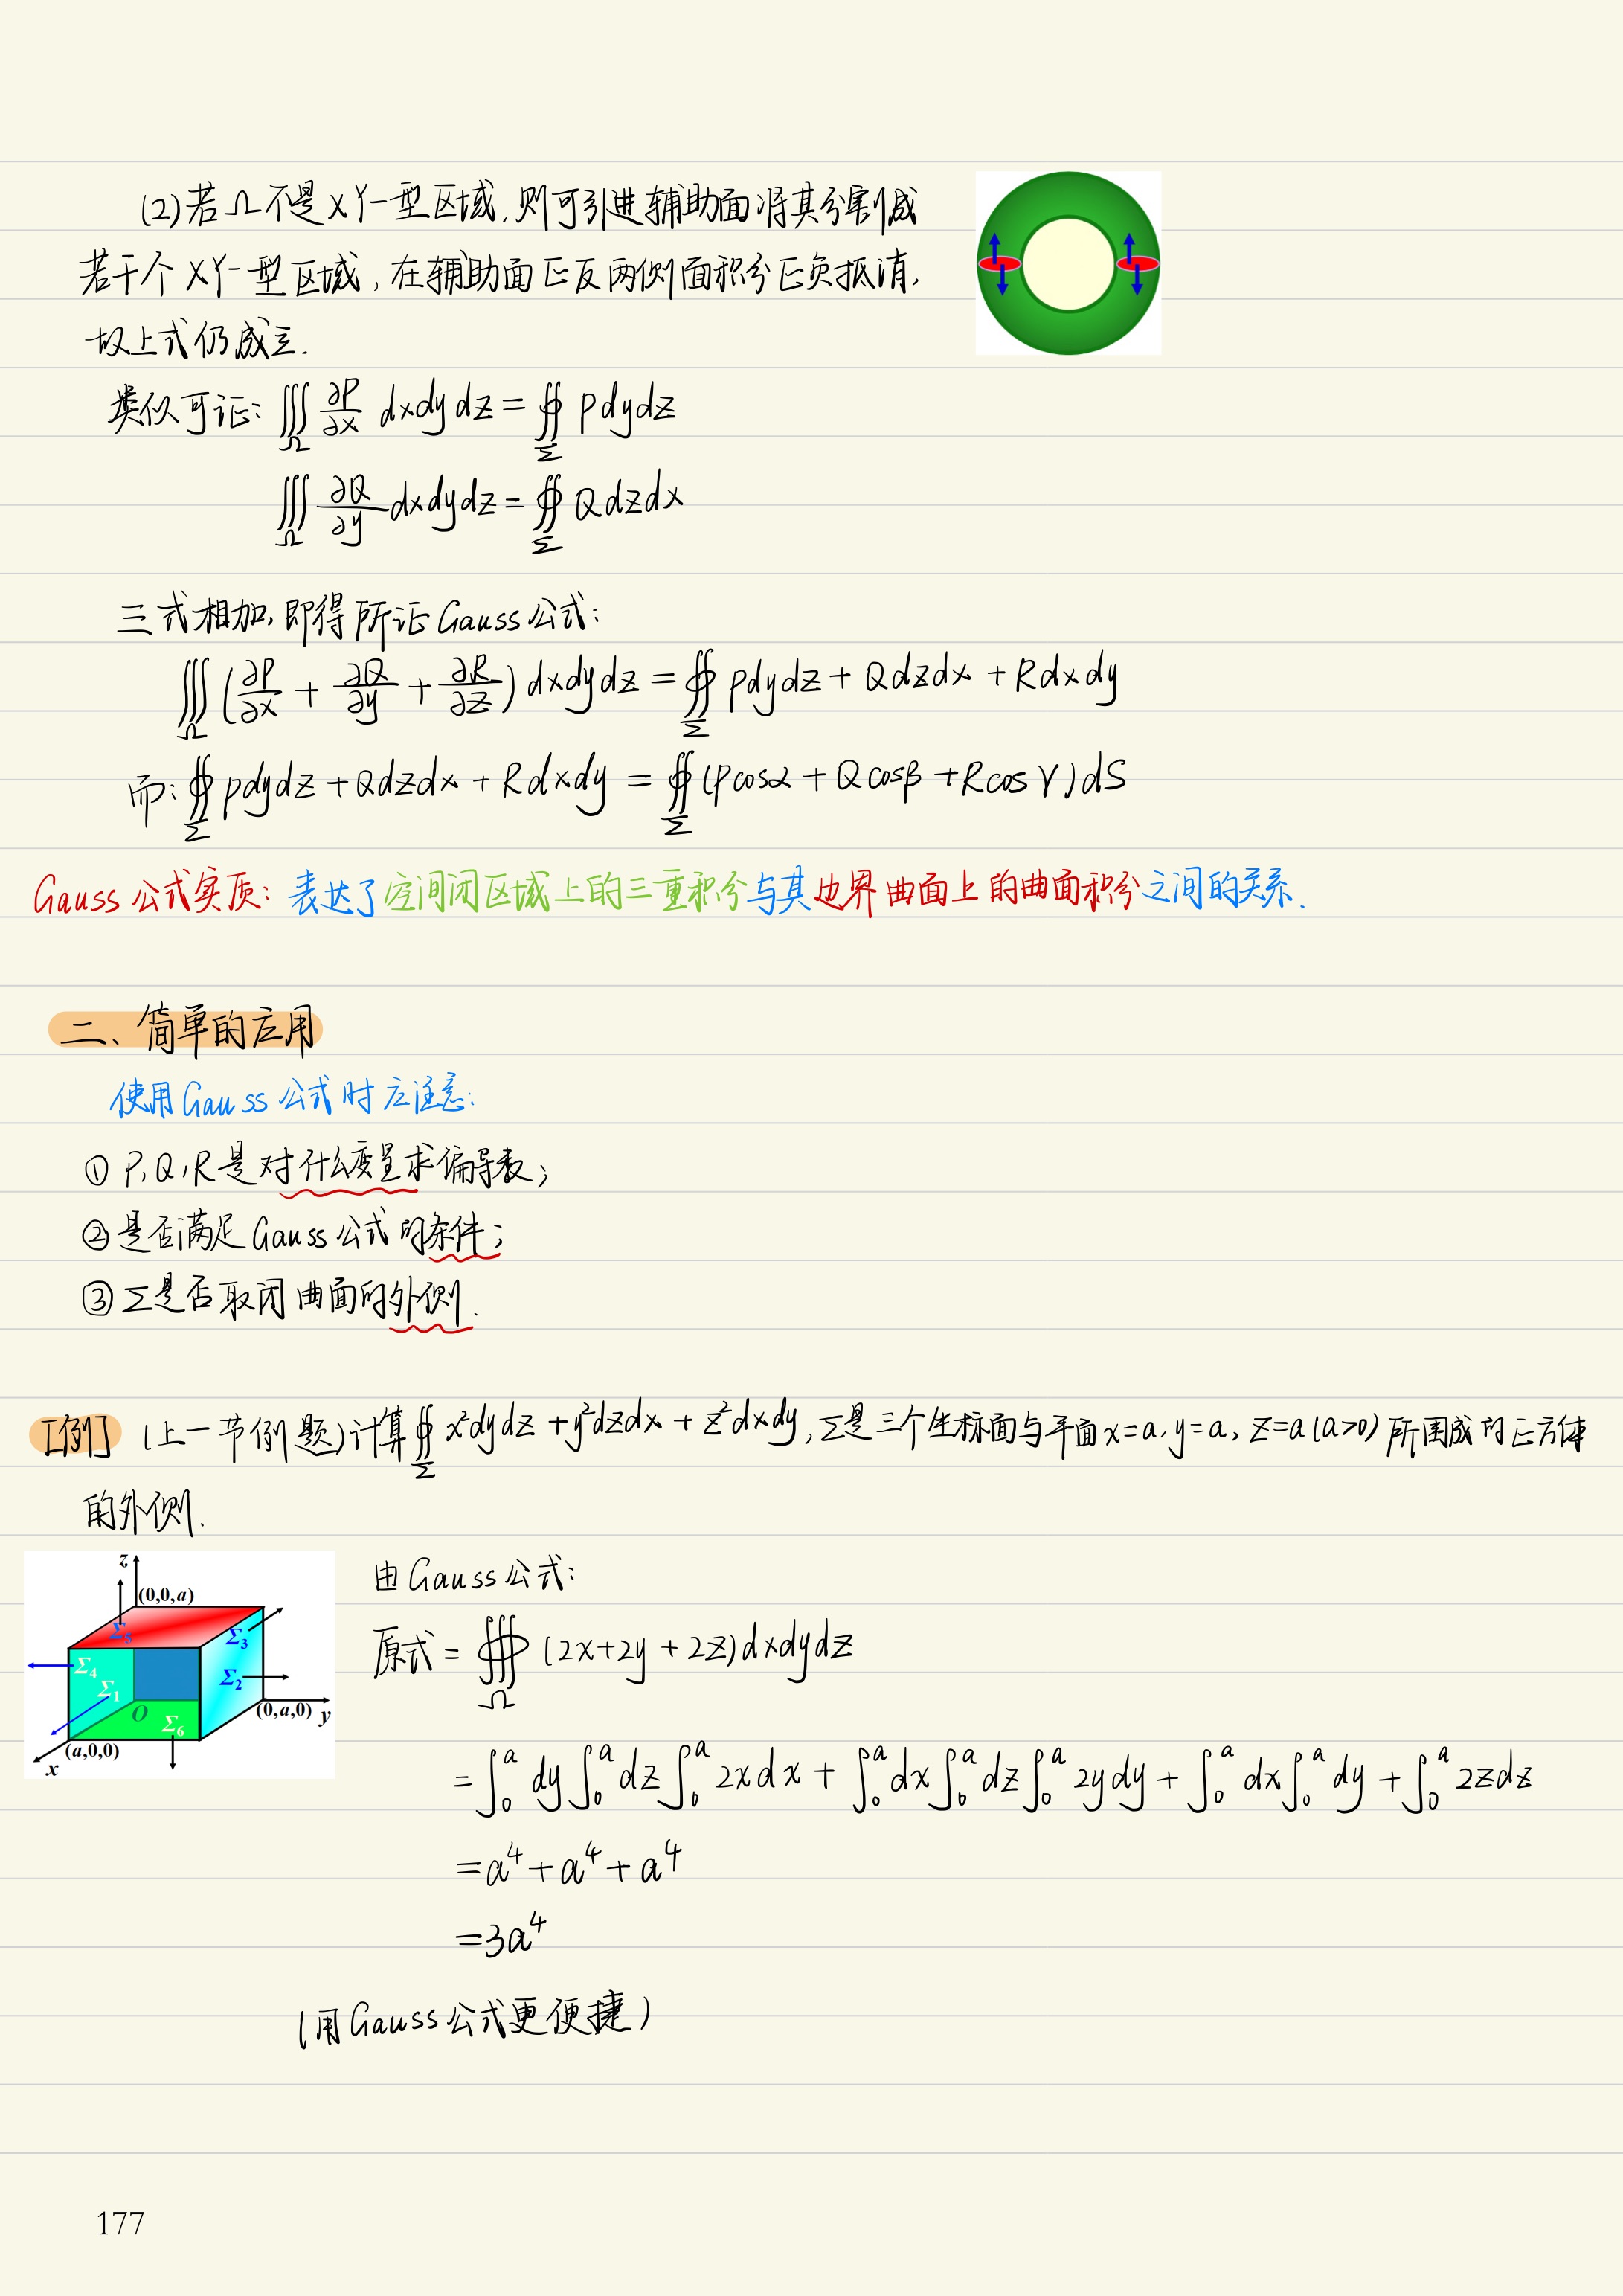 (2)若Ω不是XY-型区域,则可引进辅助面将其分割成
若干个XY-型区域,在辅助面正反两侧面积分正负抵消,
故上式仍成立.
类似可证: ∭_Ω ∂P/∂x dxdydz = ∯_Σ Pdydz
∭_Ω ∂Q/∂y dxdydz = ∯_Σ Qdzdx
三式相加,即得所证Gauss公式:
∭_Ω (∂P/∂x + ∂Q/∂y + ∂R/∂z) dxdydz = ∯_Σ Pdydz + Qdzdx + Rdxdy
而: ∯_Σ Pdydz + Qdzdx + Rdxdy = ∯_Σ (Pcosα + Qcosβ + Rcosγ) dS
Gauss公式实质: 表达了空间闭区域上的三重积分与其边界曲面上的曲面积分之间的关系.
二、简单的应用
使用Gauss公式时应注意:
① P,Q,R是对什么变量求偏导数;
② 是否满足Gauss公式的条件;
③ Σ是否取闭曲面的外侧.
[例] (上一节例题)计算∯_Σ x²dydz + y²dzdx + z²dxdy, Σ是三个坐标面与平面x=a, y=a, z=a (a>0) 所围成的正方体
的外侧.
z
(0,0,a)
Σ5
Σ3
Σ4
Σ2
Σ1
O
Σ6
(0,a,0) y
(a,0,0)
x
由Gauss公式:
原式 = ∰_Ω (2x+2y+2z) dxdydz
= ∫₀ᵃ dy ∫₀ᵃ dz ∫₀ᵃ 2xdx + ∫₀ᵃ dx ∫₀ᵃ dz ∫₀ᵃ 2ydy + ∫₀ᵃ dx ∫₀ᵃ dy + ∫₀ᵃ 2zdz
= a⁴ + a⁴ + a⁴
= 3a⁴
(用Gauss公式更便捷)
177